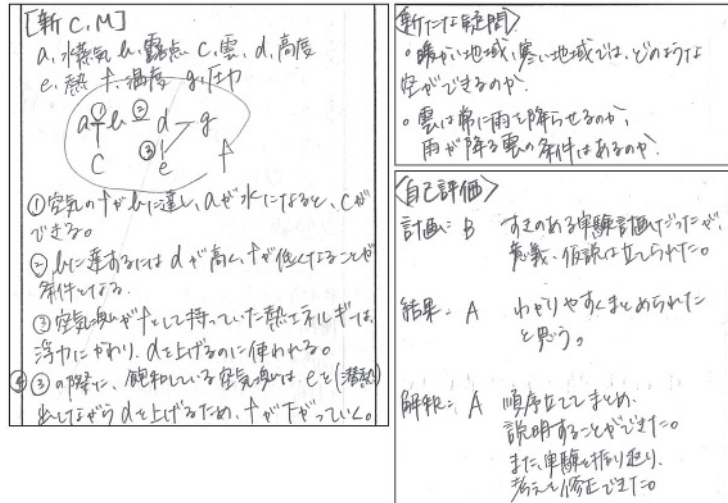 [新 C.M]
a, 水蒸気 b, 露点 c, 雲, d, 高度
e, 熱 f, 温度 g, 圧力
a ① b ② d g
③
c e f
①空気のfがbに達し、aが水になると、cが
できる。
②bに達するにはdが高く、fが低くなることが
条件となる。
③空気塊がfとして持っていた熱エネルギーは、
浮力にかわり、dを上げるのに使われる。
④③の際に、飽和している空気塊は、eを(潜熱)
出しながらdを上げるため、fが下がっていく。
〈新たな疑問〉
・暖かい地域、寒い地域では、どのような
空ができるのか。
・雲は常に雨を降らせるのか、
雨が降る雲の条件はあるのか。
〈自己評価〉
計画: B すきのある実験計画だったが、
意義、仮説は立てられた。
結果: A わかりやすくまとめられた
と思う。
解釈: A 順序立ててまとめ、
説明することができた。
また、実験を振り返り、
考えを修正できた。